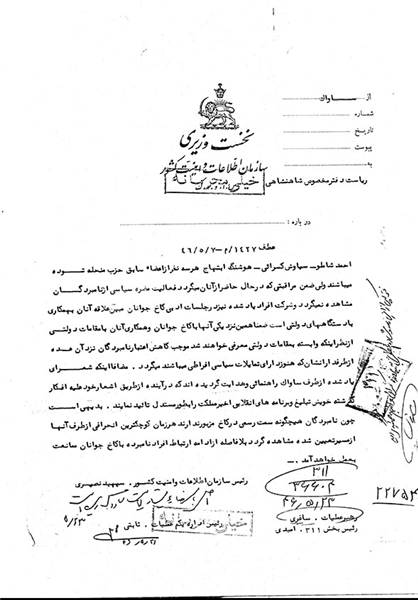 از ساواك
شماره
تاریخ
پیوست
به
نخست وزیری
سازمان اطلاعات و امنیت کشور
خیلی محرمانه
ریاست دفتر مخصوص شاهنشاهی
درباره :
عطف ۱۴۲۷/م - ۴۶/۵/۷
احمد شاملو- سیاوش کسرائی- هوشنگ ابتهاج هر سه نفر از اعضاء سابق حزب منحله توده
میباشند ولی ضمن مراقبتی که در حال حاضر از آنان میگردد فعالیت مضره سیاسی از نامبردگان
مشاهده نمیگردد و شرکت افراد یاد شده نیز در جلسات ادبی کاخ جوانان مبین علاقه آنان بهمکاری
با دستگاههای دولتی است ضمنا همین نزدیکی آنها با کاخ جوانان و همکاری آنان با مقامات دولتی
از نظر اینکه وابسته بمقامات دولتی معرفی خواهند شد موجب کاهش اعتبار نامبردگان نزد آن عده
از طرفدارانشان که هنوز دارای تمایلات سیاسی افراطی میباشند میگردد . مضافا اینکه شعرای
یاد شده از طرف ساواك راهنمائی و هدایت گردیده اند که در آینده از طریق اشعار خود علیه افکار
گذشته خویش تبلیغ و برنامه های انقلابی اخیر مملکت را بطور مستدل تائید نمایند . بدیهی است
چون نامبردگان هیچگونه سمت رسمی در کاخ مزبور ندارند هر زمان کوچکترین انحرافی از طرف آنها
از مسیر تعیین شده مشاهده گردد بلافاصله از ادامه ارتباط افراد نامبرده با کاخ جوانان ممانعت
بعمل خواهد آمد .
رئیس سازمان اطلاعات و امنیت کشور . سپهبد نصیری
۳۱۱
۳۶۶۰۴
۴۶/۵/۲۳
۲۲۷۵۴
رهبر عملیات . سافری
رئیس بخش ۳۱۱ . امیدی
رئیس اداره یکم عملیات . ثابتی
خیلی محرمانه